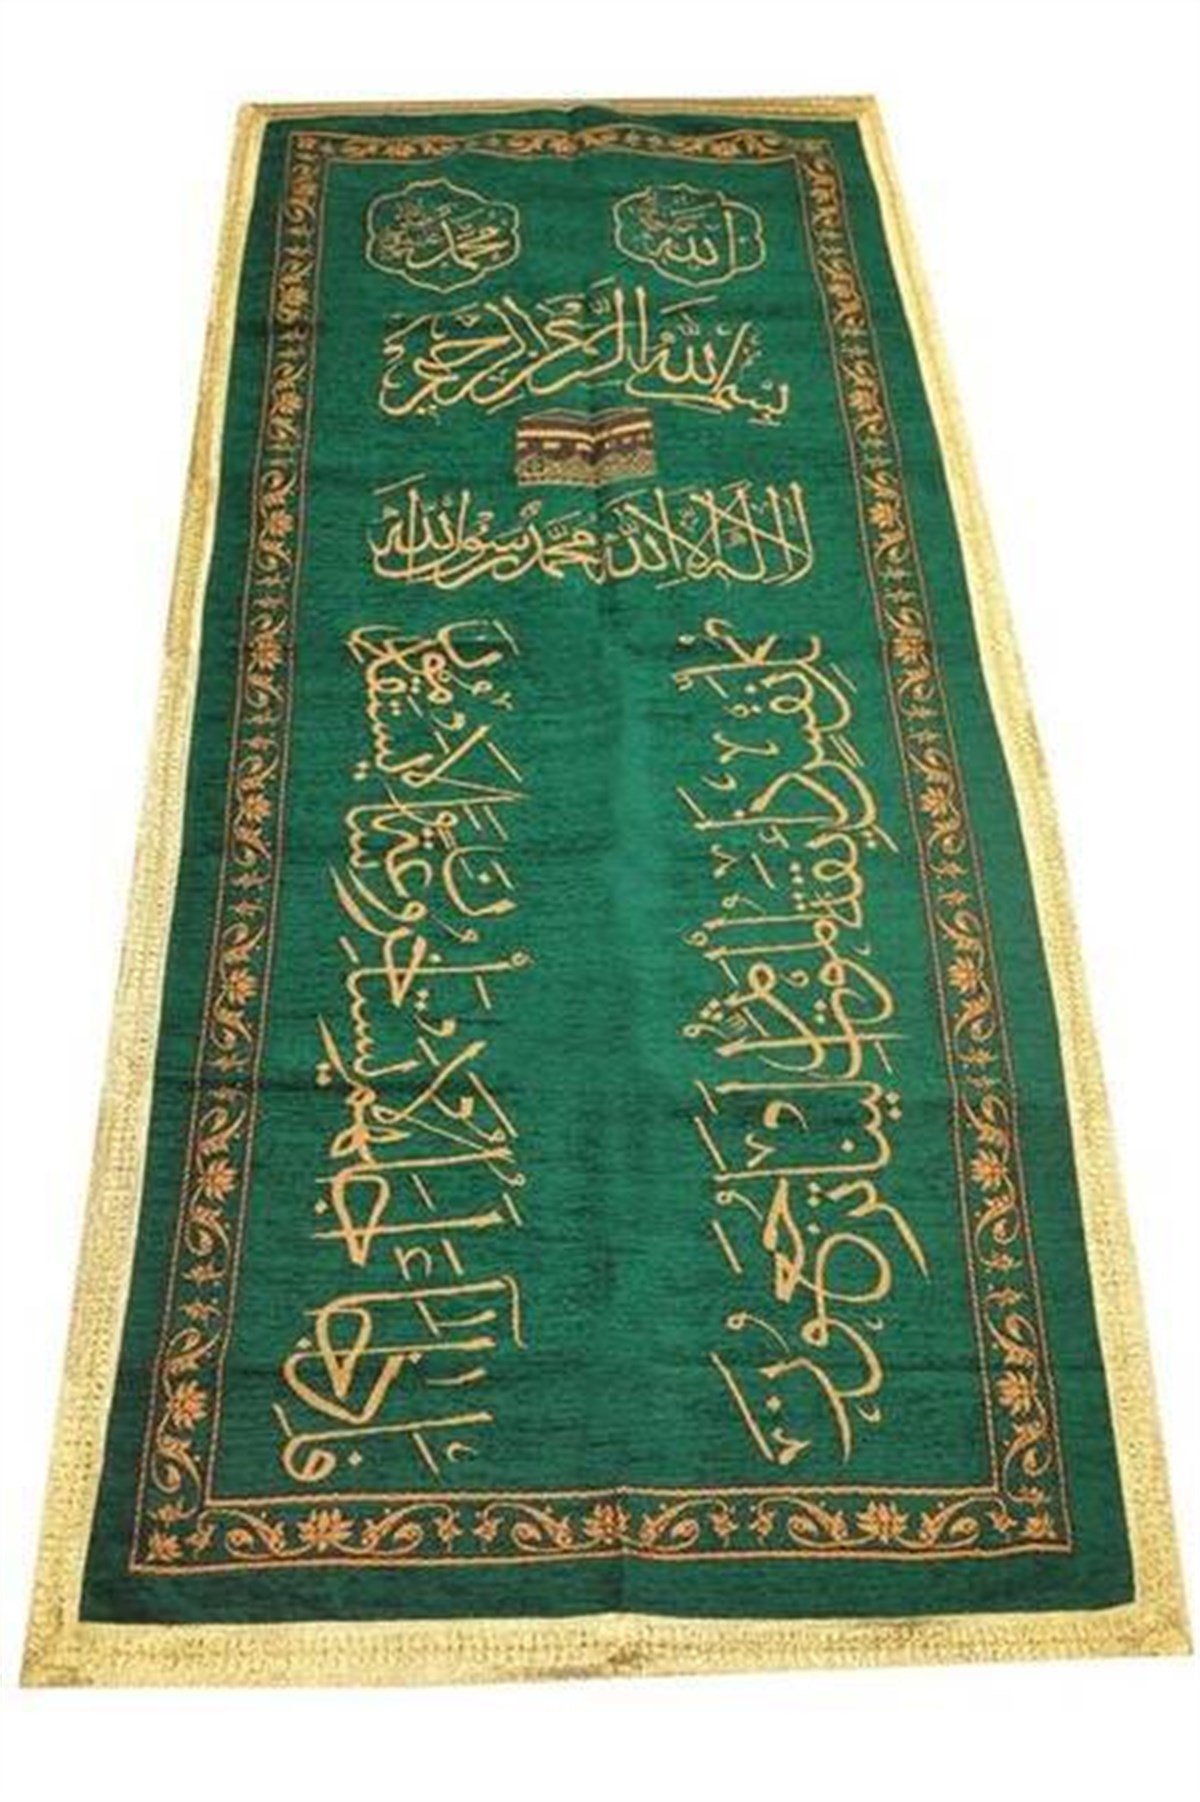 الله
محمد
بسم الله الرحمن الرحيم
لا اله الا الله محمد رسول الله
كل نفس ذائقة الموت ثم الينا ترجعون
فاذا جاء اجلهم لا يستأخرون ساعة ولا يستقدمون